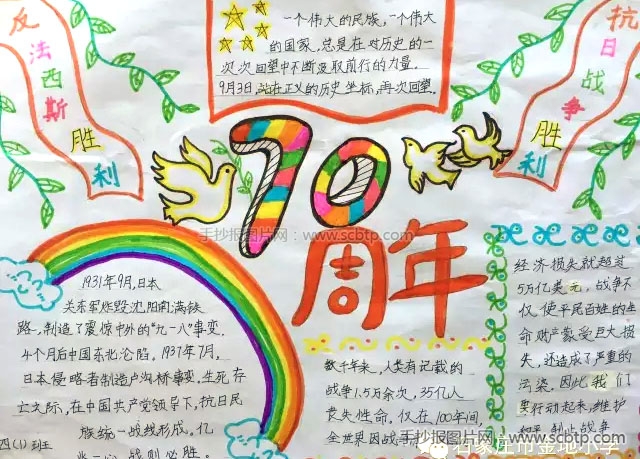 反法西斯胜利
一个伟大的民族,一个伟大
的国家,总是在对历史的一
次次回望中不断汲取前行的力量。
9月3日,站在正义的历史坐标,再次回望。
抗日战争胜利
70
周年
手抄报图片网:www.scbtp.com
1931年9月,日本
关东军炸毁沈阳南满铁
路,制造了震惊中外的"九一八"事变,
4个月后中国东北沦陷,1937年7月,
日本侵略者制造卢沟桥事变,生死存
亡之际,在中国共产党领导下,抗日民
族统一战线形成,亿
四(1)班
数千年来,人类有记载的
战争1.5万余次,35亿人
丧失性命,仅在100年间,
全世界因战
经济损失就超过
5万亿美元,战争不
仅使平民百姓的生
命财产蒙受巨大损
失,还造成了严重的
污染,因此我们
要行动起来,维护
和平,制止战争
手抄报图片网:www.scbtp.com
石家庄市金地小学